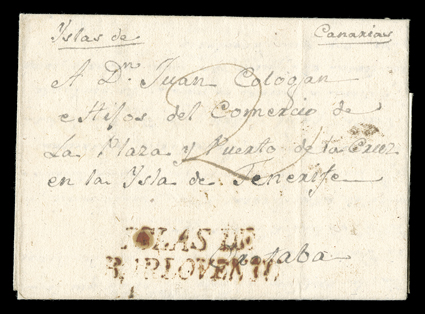 Yslas de Canarias
A Dn. Juan Cologan
e Hijos del Comercio de
La Plaza y Puerto de la Cruz
en la Ysla de Tenerife
ISLAS DE
BARLOVENTO